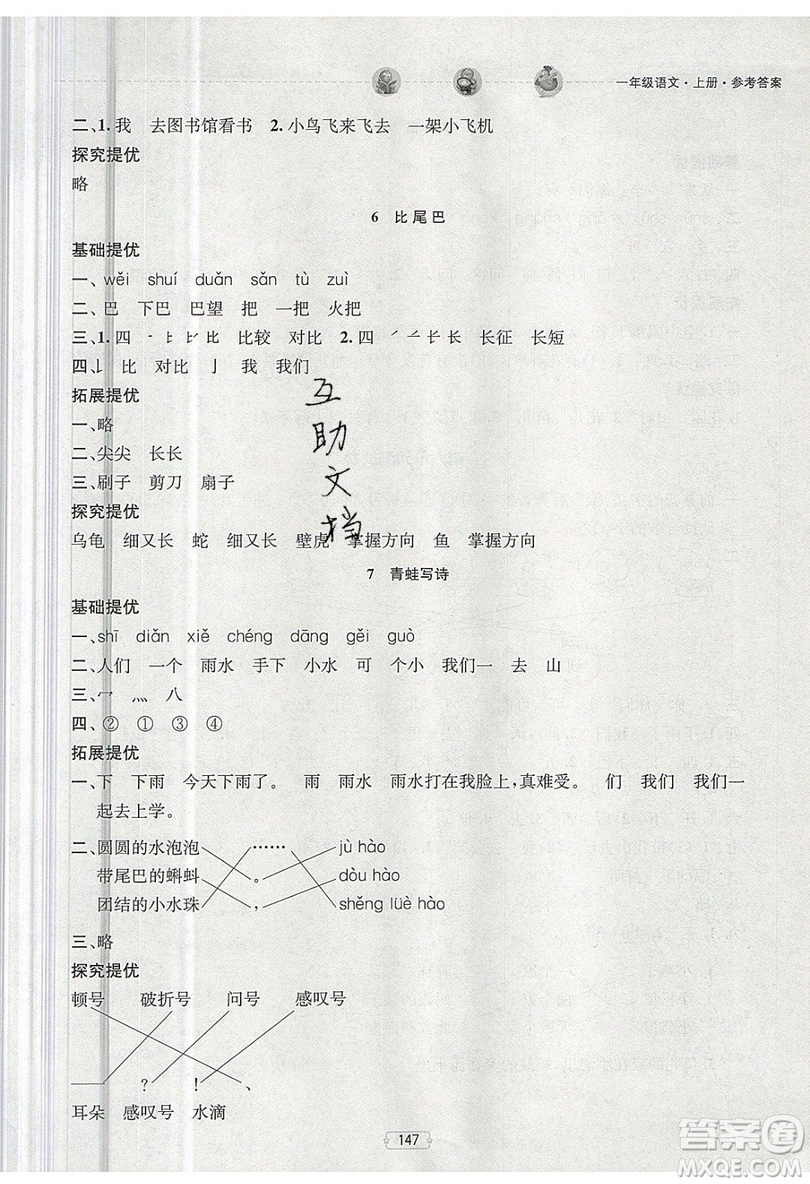 一年级语文·上册·参考答案
二、1.我 去图书馆看书 2.小鸟飞来飞去 一架小飞机
探究提优
略
6 比尾巴
基础提优
一、wěi shuí duǎn sǎn tù zuì
二、巴 下巴 巴望 把 一把 火把
三、1.四 比 比较 对比 2.四 长 长征 长短
四、 比 对比 亅 我 我们
拓展提优
一、略
二、尖尖 长长
三、刷子 剪刀 扇子
探究提优
乌龟 细又长 蛇 细又长 壁虎 掌握方向 鱼 掌握方向
7 青蛙写诗
基础提优
一、shī diǎn xiě chéng dāng gěi guò
二、人们 一个 雨水 手下 小水 可 个 我们 一 去 山
三、冖 灬 八
四、② ① ③ ④
拓展提优
一、下 下雨 今天下雨了。 雨 雨水 雨水打在我脸上,真难受。 们 我们 我们一
起去上学。
二、圆圆的水泡泡 …… jù hào
带尾巴的蝌蚪 。 dòu hào
团结的小水珠 , shěng lüè hào
三、略
探究提优
顿号 破折号 问号 感叹号
—— ? ! 、
耳朵 感叹号 水滴
147
互
助
文
档
答案圈
MXQE.COM